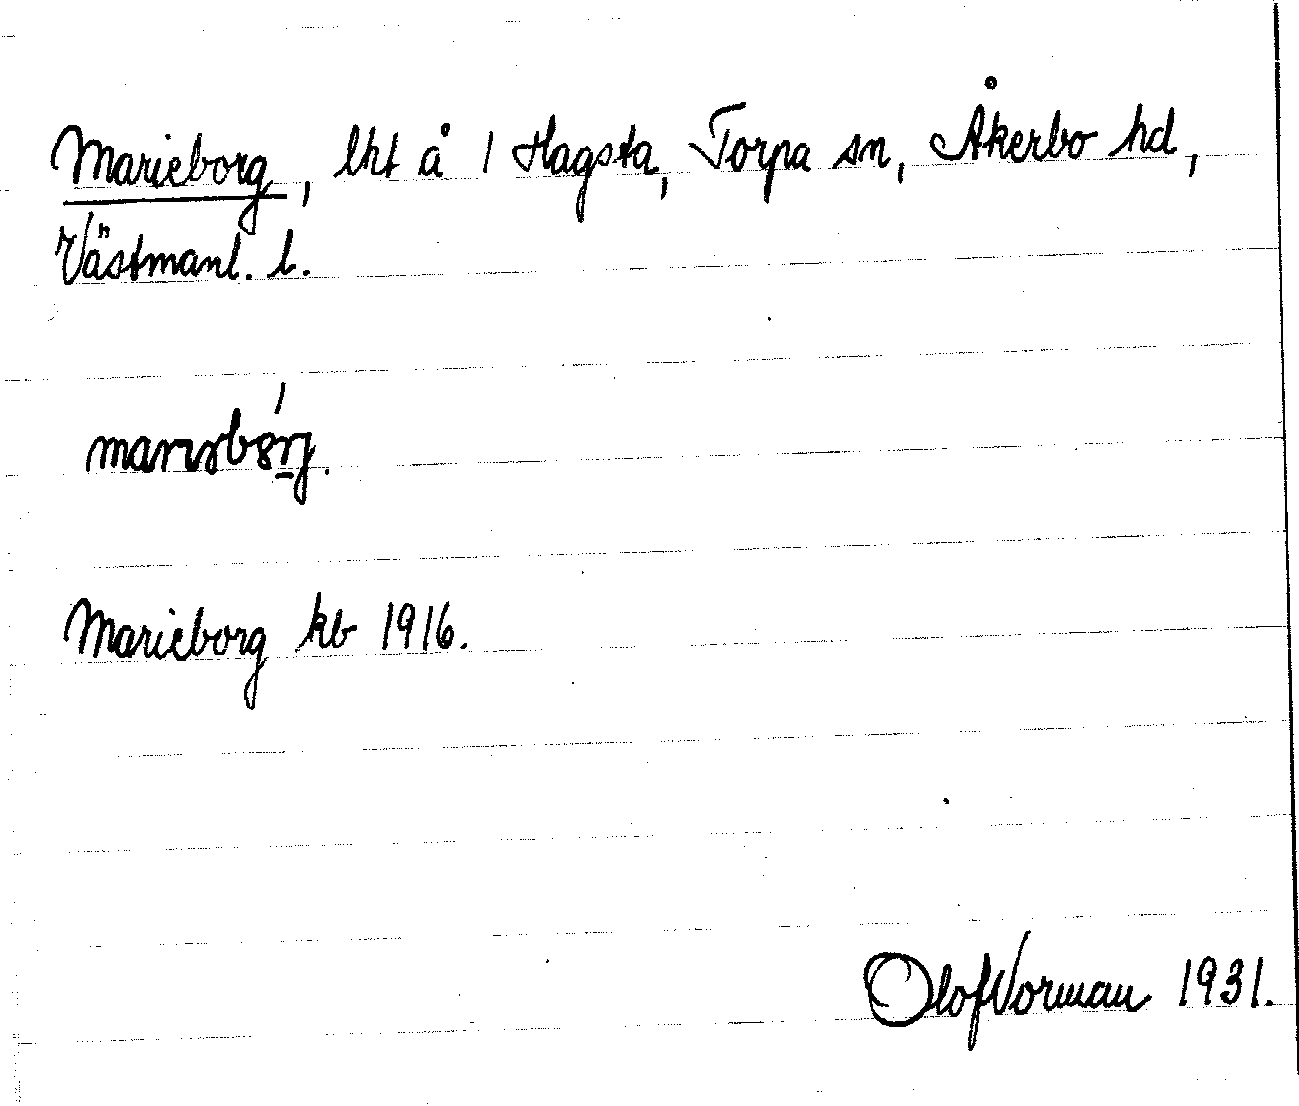 Marieborg, lht å 1 Hagsta, Torpa sn, Åkerbo hd,
Västmanl. l.
Marieborg kb 1916.
Olof Vorman 1931.